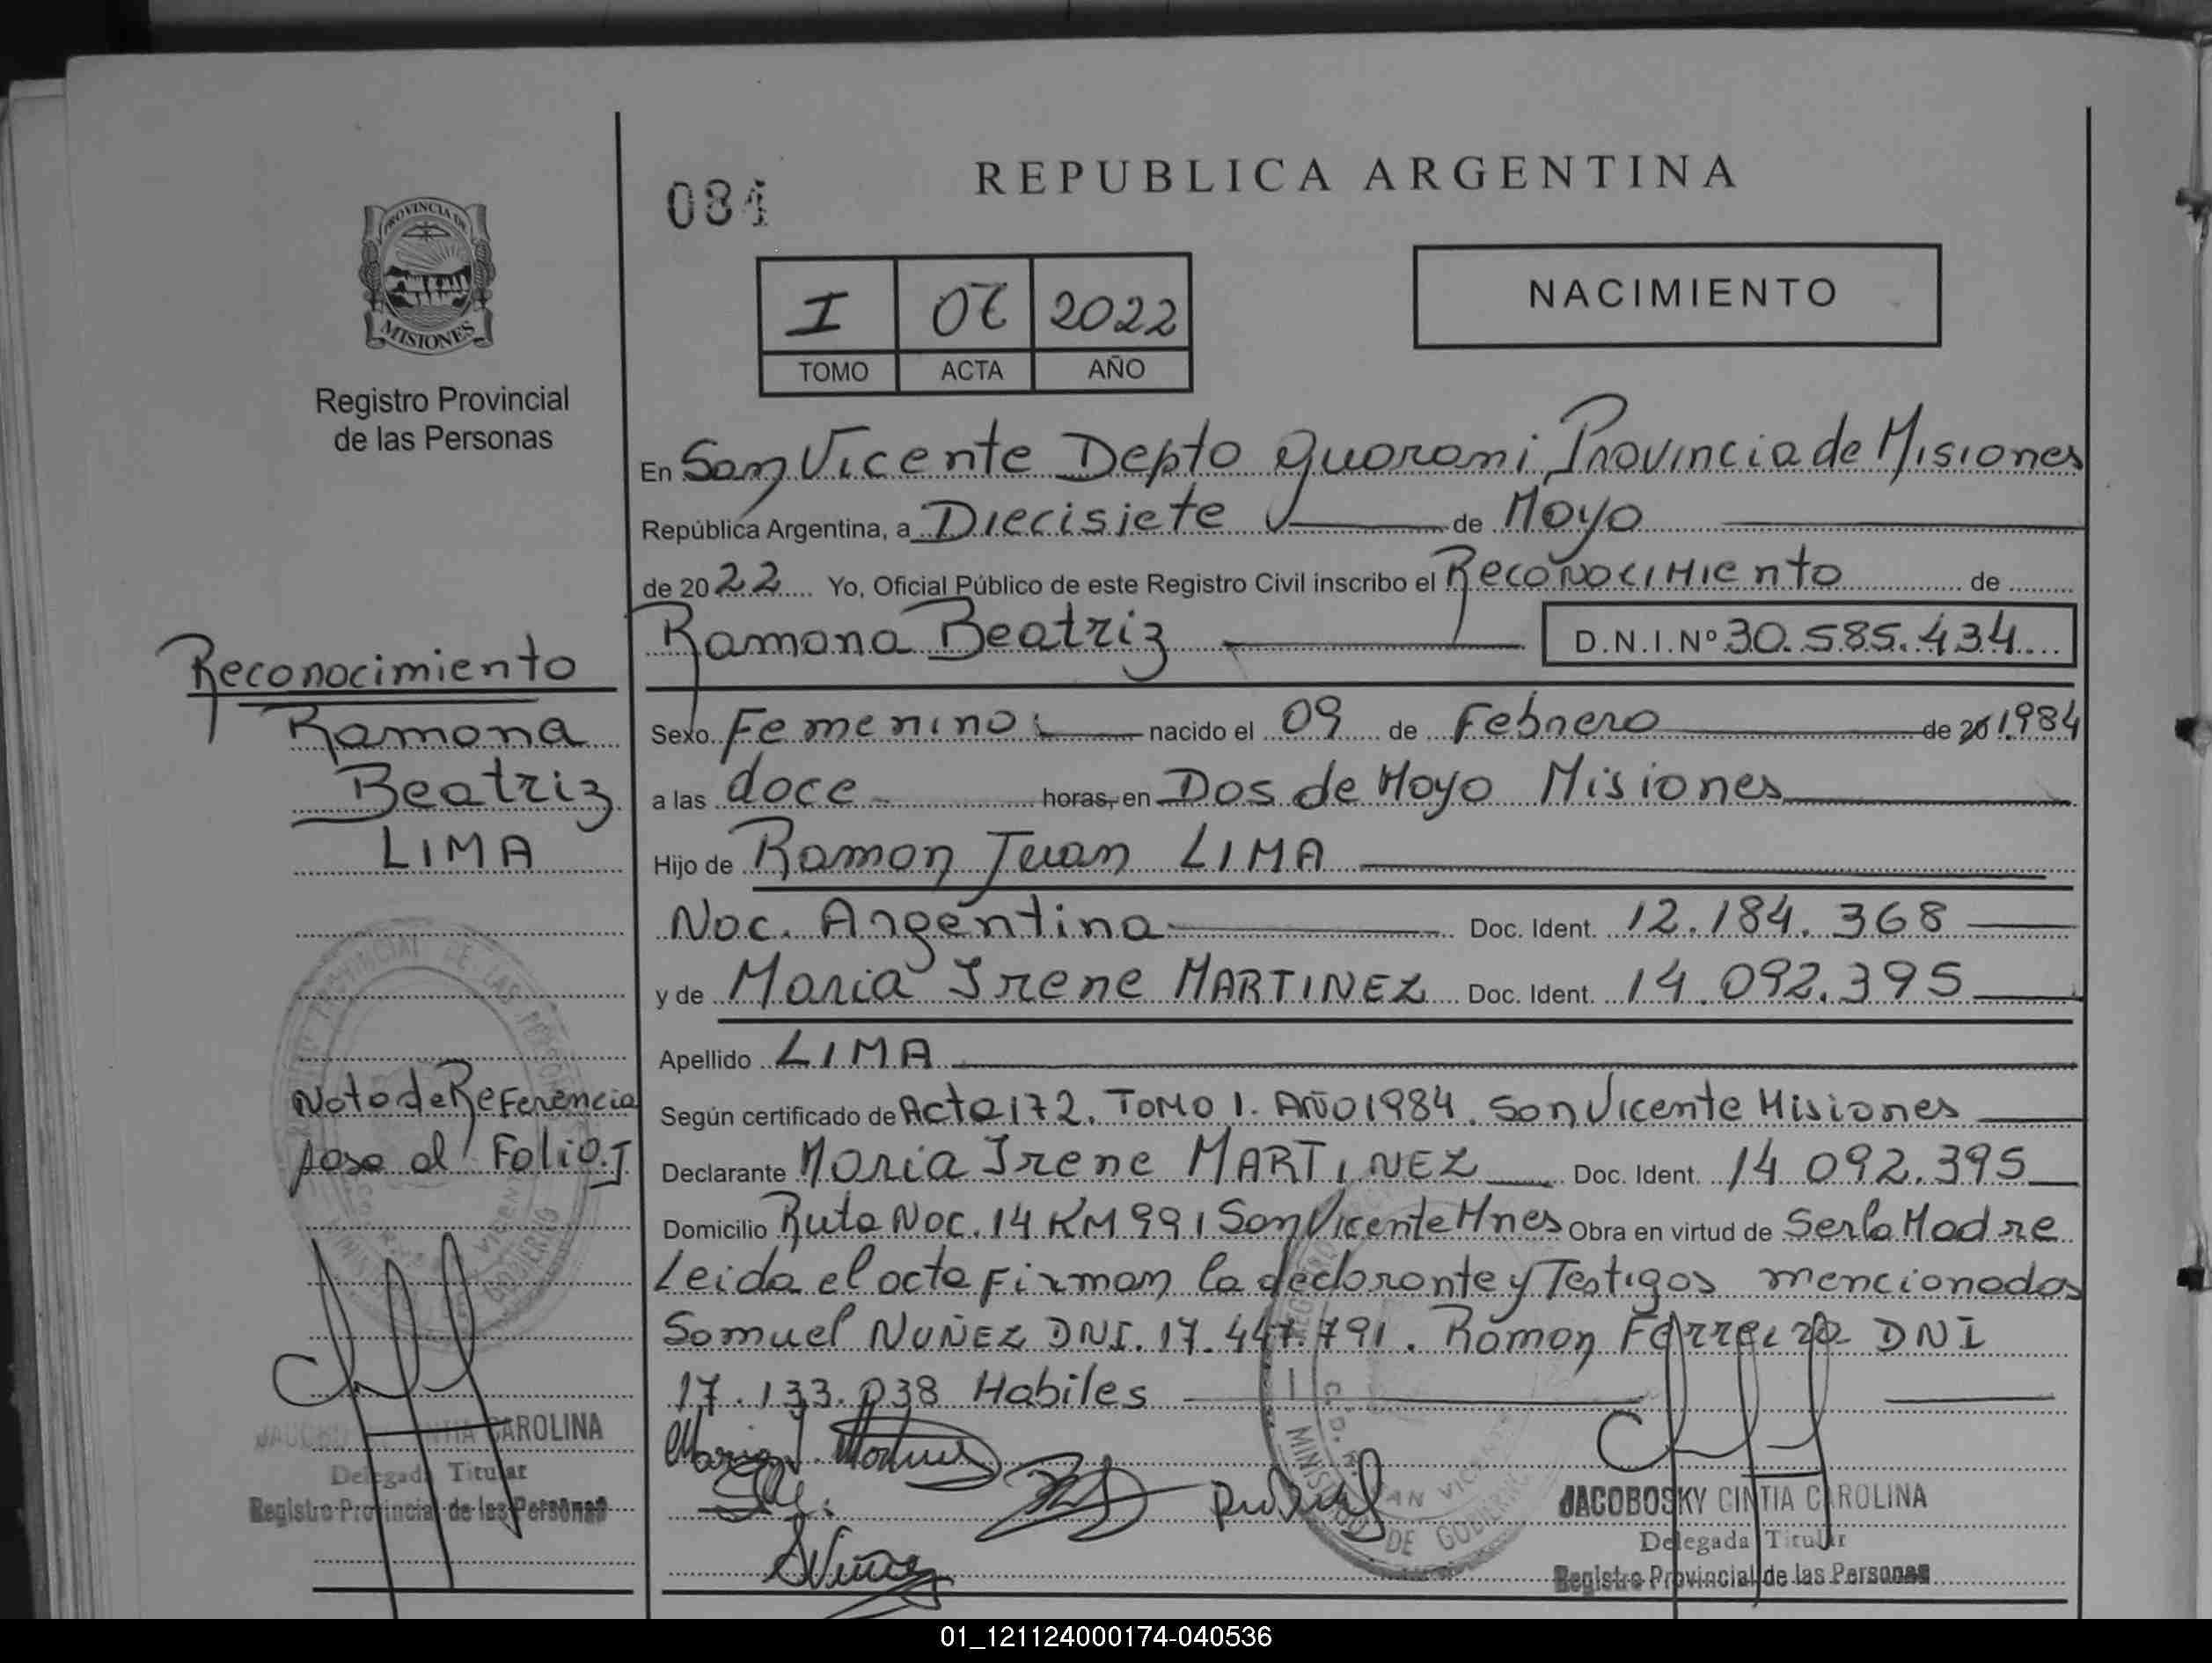 084
REPUBLICA ARGENTINA
PROVINCIA DE
MISIONES
Registro Provincial
de las Personas
I 2022
TOMO ACTA AÑO
NACIMIENTO
En San Vicente Depto Guarani Provincia de Misiones
República Argentina, a Diecisiete de Mayo
de 2022 Yo, Oficial Público de este Registro Civil inscribo el Reconocimiento de
Ramona Beatriz D.N.I.Nº 30.585.434
Sexo Femenino nacido el 09 de Febrero de 20 1984
a las doce horas, en Dos de Mayo Misiones
Hijo de Ramon Juan LIMA
Nac. Argentina Doc. Ident. 12.184.368
y de Maria Irene MARTINEZ Doc. Ident. 14.092.395
Apellido LIMA
Según certificado de Acta 172. TOMO 1. AÑO 1984. San Vicente Misiones
Declarante Maria Irene MARTINEZ Doc. Ident. 14.092.395
Domicilio Ruta Nac. 14 KM 991 San Vicente Mnes Obra en virtud de Ser la Madre
Leida el acta Firman la declarante y Testigos mencionados
Samuel NUÑEZ DNI. 17.447.791. Ramon Ferreira DNI
17.133.038 Habiles
JACOBOSKY CINTIA CAROLINA
Delegada Titular
Registro Provincial de las Personas
Reconocimiento
Ramona
Beatriz
LIMA
Nota de Referencia
pasa al Folio
CAROLINA
Delegada Titular
Registro Provincial de las Personas
01_121124000174-040536